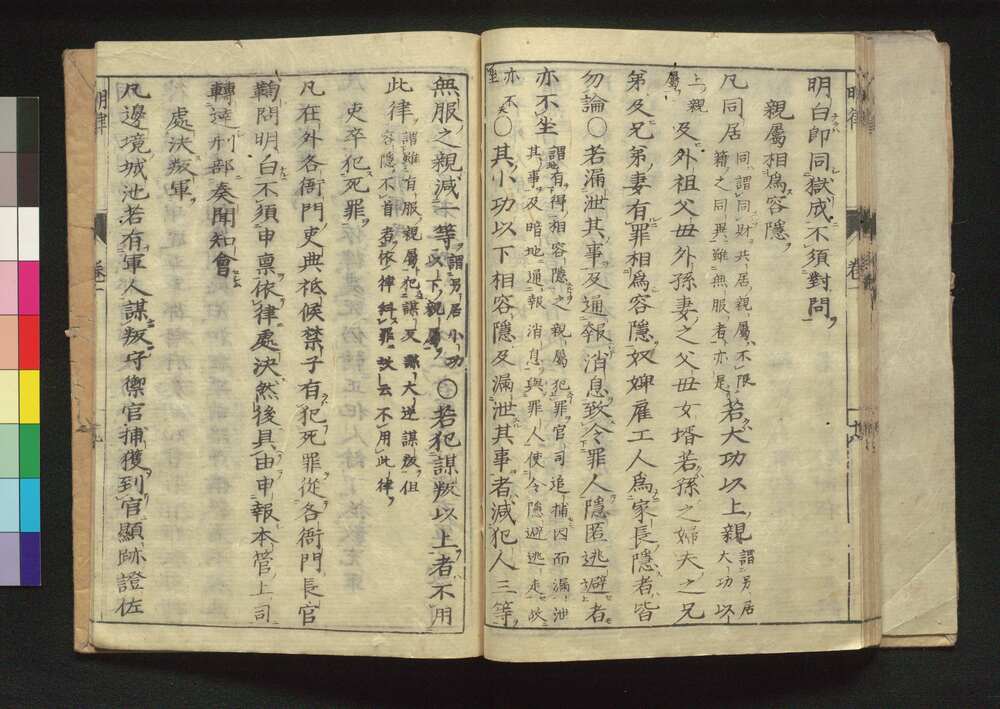 明白卽同獄成不須對問
親屬相爲容隱
凡同居 同謂同財共居親屬不限籍之同異雖無服者亦是 若大功以上親 謂另居大功以
上親屬 及外祖父母外孫妻之父母女壻若孫之婦夫之兄
弟及兄弟妻有罪相爲容隱奴婢雇工人爲家長隱者皆
勿論〇若漏泄其事及通報消息致令罪人隱匿逃避者
亦不坐 謂有得相容隱之親屬犯罪官司追捕因而漏泄其事及暗地通報消息與罪人使令隱避逃走故
亦不坐 〇其小功以下相容隱及漏泄其事者減犯人三等
無服之親減一等 謂另居小功以下親屬 〇若犯謀叛以上者不用
此律 謂雖有服親屬犯謀反謀大逆謀叛但容隱不首者依律科罪故云不用此律
吏卒犯死罪
凡在外各衙門吏典祗候禁子有犯死罪從各衙門長官
鞫問明白不須申稟依律處決然後具由申報本管上司
轉達刑部奏聞知會
處決叛軍
凡邊境城池若有軍人謀叛守禦官捕獲到官顯跡證佐
明律
卷一
明律
卷一